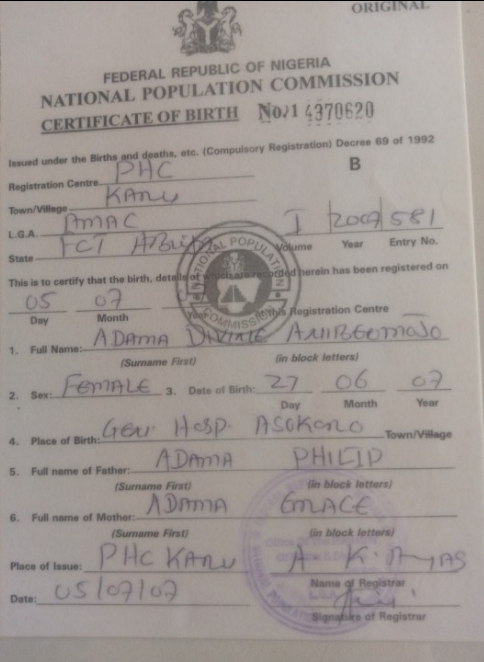 ORIGINAL
FEDERAL REPUBLIC OF NIGERIA
NATIONAL POPULATION COMMISSION
CERTIFICATE OF BIRTH No 4370620
Issued under the Births and deaths, etc. (Compulsory Registration) Decree 69 of 1992
Registration Centre PHC B
Town/Village KARU
L.G.A. AMAC
State FCT ABUJA I 2007 581
Volume Year Entry No.
This is to certify that the birth, details of which are recorded herein has been registered on
05 07
Day Month Year at this Registration Centre
1. Full Name: ADAMA DIVINE
(Surname First) (in block letters)
2. Sex: FEMALE 3. Date of Birth: 27 06 07
Day Month Year
4. Place of Birth: Gen Hosp. ASOKORO Town/Village
5. Full name of Father: ADAMA PHILIP
(Surname First) (in block letters)
6. Full name of Mother: ADAMA GRACE
(Surname First) (in block letters)
Place of Issue: PHC KARU A K.
Name of Registrar
Date: 05/07/07
Signature of Registrar
NATIONAL POPULATION COMMISSION